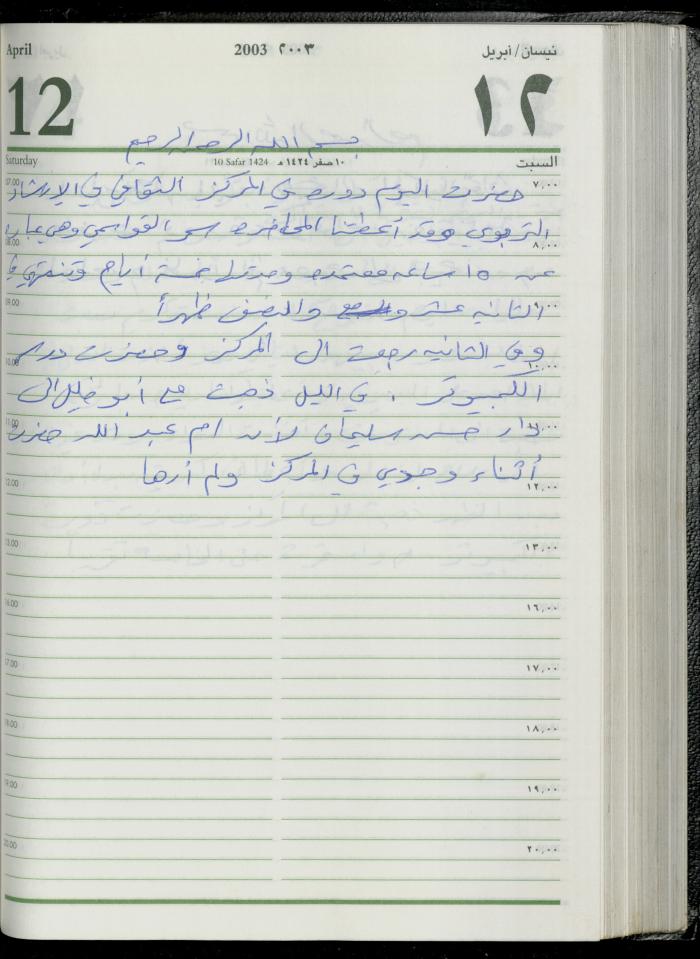 April 2003 ٢٠٠٣ نيسان/أبريل
12 ١٢
بسم الله الرحمن الرحيم
Saturday 10 Safar 1424 ١٠ صفر ١٤٢٤ هـ السبت
07.00 ٧,٠٠
حضرت اليوم دورة في المركز الثقافي في الإرشاد
التربوي وقد أعطتنا المحاضرة سحر القواسمي وهي عبارة
08.00 ٨,٠٠
عن 15 ساعة معتمدة ومدتها خمسة أيام وتنتهي
09.00 ٩,٠٠
الثانية عشر والنصف ظهراً
وفي الثانية رجعت الى المركز وحضرت درس
10.00 ١٠,٠٠
الكمبيوتر . في الليل ذهبت مع أبو خليل الى
11.00 ١١,٠٠
دار حسن سليمان لأن ام عبد الله حضرت
أثناء وجودي في المركز ولم أرها
12.00 ١٢,٠٠
13.00 ١٣,٠٠
16.00 ١٦,٠٠
17.00 ١٧,٠٠
18.00 ١٨,٠٠
19.00 ١٩,٠٠
20.00 ٢٠,٠٠